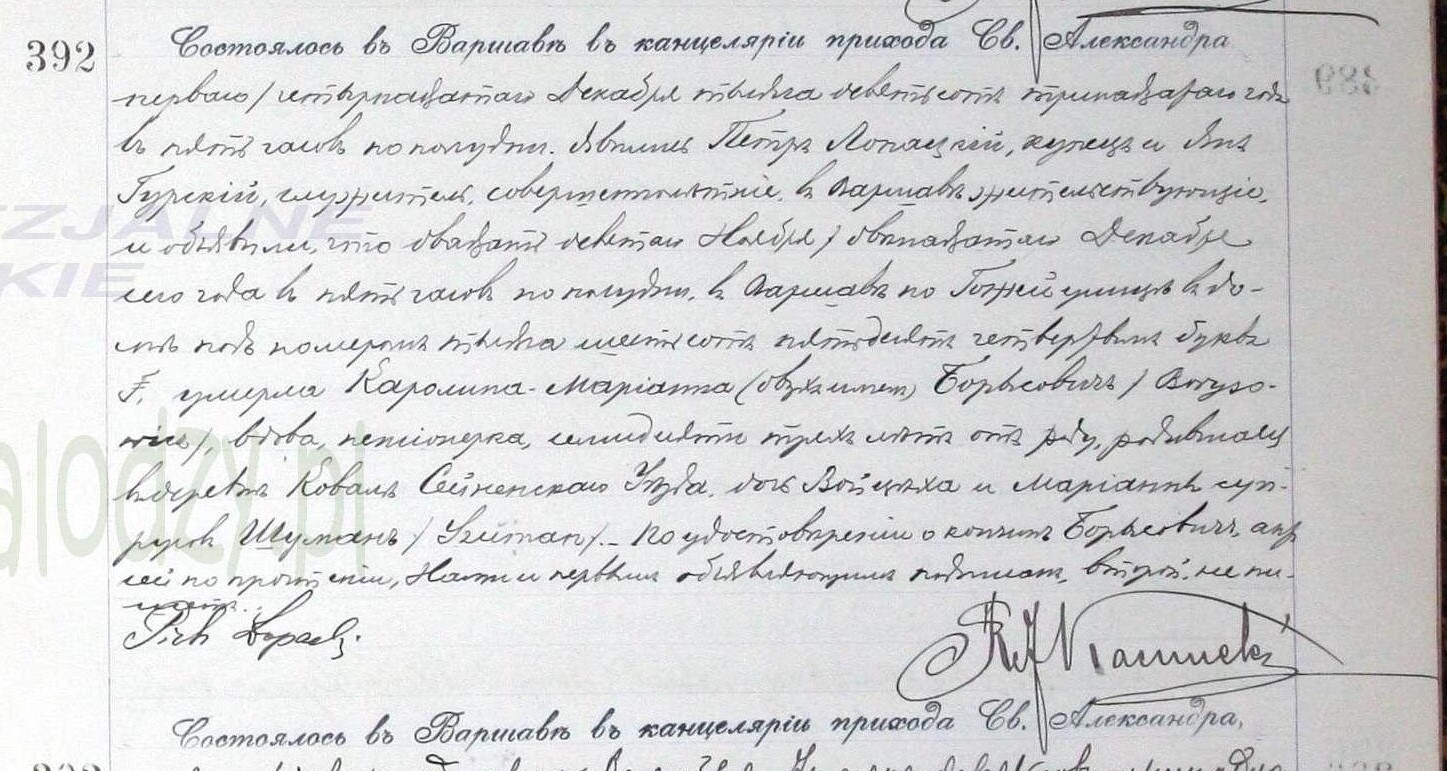 392
Состоялось въ Варшавѣ въ канцеляріи прихода Св. Александра
перваго / четырнадцатаго Декабря тысяча девятьсотъ тринадцатаго года
въ пять часовъ по полудни. Явились Петръ Лопацкій, купецъ и Янъ
Гурскій, служитель, совершеннолѣтніе, въ Варшавѣ жительствующіе,
и объявили, что двадцать девятаго Ноября / двѣнадцатаго Декабря
сего года въ пять часовъ по полудни, въ Варшавѣ по Гожей улицѣ въ до-
мѣ подъ номеромъ тысяча шестьсотъ пятьдесятъ четвертымъ буква
F. умерла Каролина-Маріанна (двухъ именъ) Борысовичъ / Boryso-
wicz /, вдова, пенсіонерка, семидесяти трехъ лѣтъ отъ роду, родившаяся
въ деревнѣ Коваль Сейненскаго Уѣзда, дочь Войцѣха и Маріанны суп-
руговъ Шуманъ / Szuman /. По удостовѣреніи о кончинѣ Борысовичъ, актъ
сей по прочтеніи, Нами и первымъ объявляющимъ подписанъ, второй не пи-
шетъ.
Piotr Łopacki
Состоялось въ Варшавѣ въ канцеляріи прихода Св. Александра,
ZJALNE
KIE
alodzy.pl